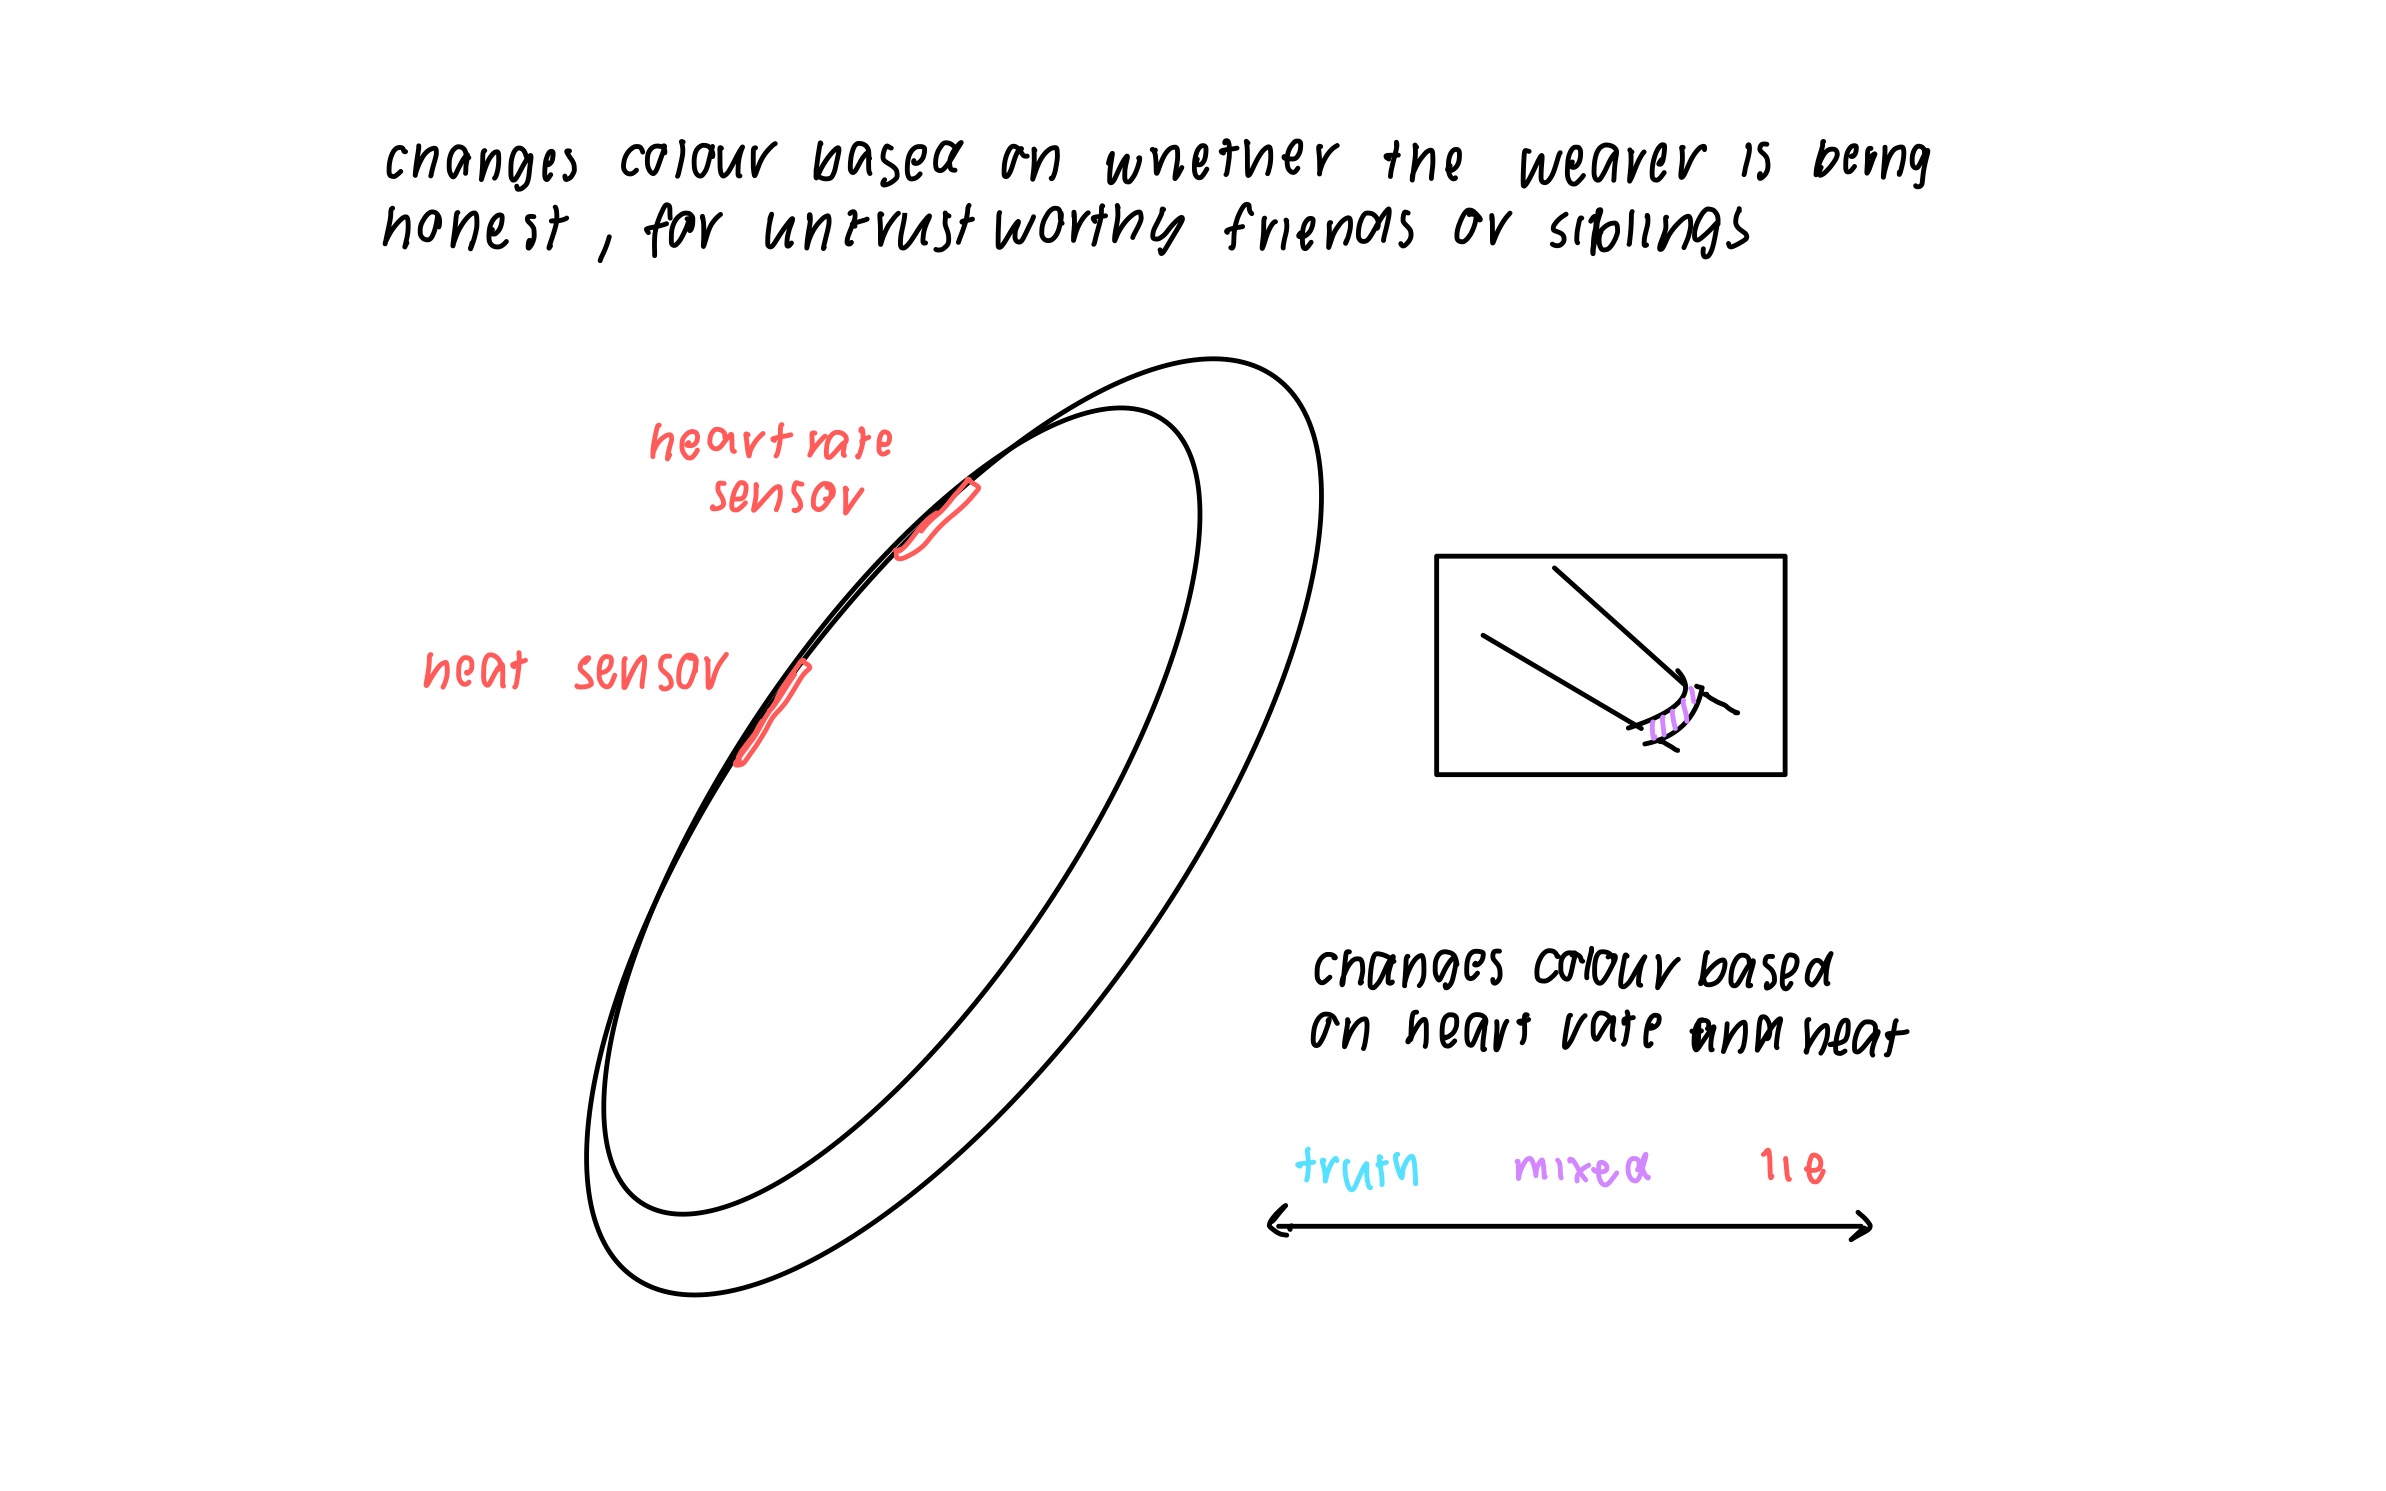 changes colour based on whether the wearer is being
honest, for untrustworthy friends or siblings
heart rate
sensor
heat sensor
changes colour based
on heart rate and heat
truth mixed lie